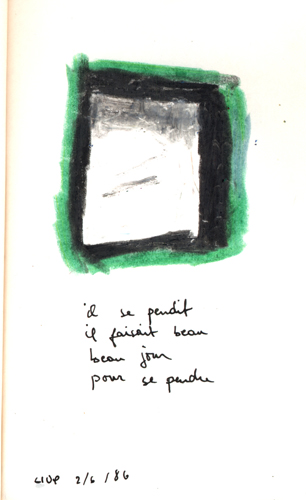 il se pendit
il faisait beau
beau jour
pour se pendre
2/6/86